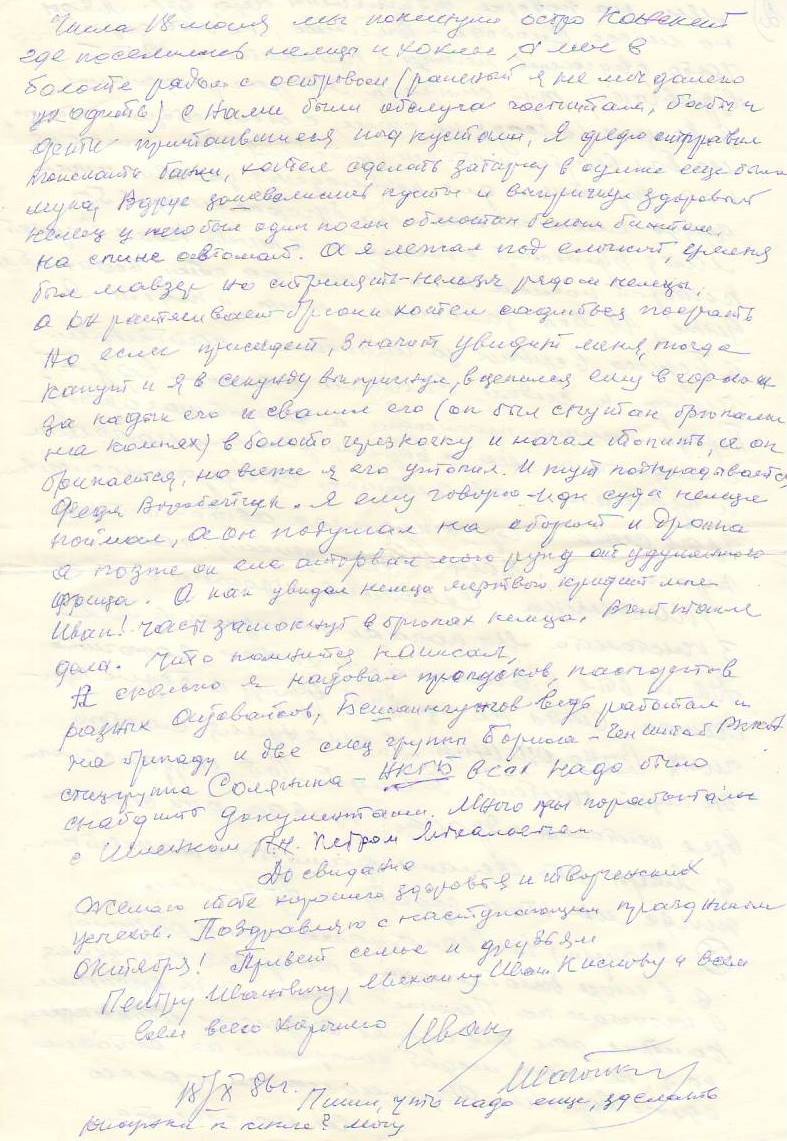 Числа 18 июня мы покинули остро
где поселились немцы и хохлы, а мы в
болоте рядом с островом (раненый я не мог далеко
уходить) с нами были обслуга бабы и
дети притаившиеся под кустами, Я Федю отправил
поискать хотел сделать затирку в сумке еще была
мука, Вдруг зашевелились кусты и здоровый
немец у него был один погон обмотан белым бинтом,
на спине автомат. А я лежал под елочкой, у меня
был маузер но стрелять нельзя рядом немцы,
а он растягивает брюки хотел садиться посрать
Но если присядет, значит увидит меня, тогда
капут и я в секунду выпрыгнул, вцепился ему в горло и
за кадык его и свалил его (он был спутан брюками
на коленях) в болото через кочку и начал топить, а он
брыкается, но все же я его утопил. И тут подкрадывается
Федя Я ему говорю - иди сюда немца
поймал, а он подумал на оборот и
а позже он еле оторвал мою руку от удушенного
фрица. А как увидал немца мертвого кричит мне
Иван! часы замокнут в брюках немца. Вот такие
дела. Что помнится написал,
А сколько я пропусков, паспортов
разных ведь работал и
на бригаду и две спец группы Бориса - Ген штаб РККА
спецгруппа Солягина - НКГБ всех надо было
снабдить документами. Много мы поработали
с П.Н. Петром
До свидания
Желаю тебе хорошего здоровья и творческих
успехов. Поздравляю с наступающим праздником
Октября! Привет семье и друзьям
Петру Ивановичу, Михаилу Иван. и всем
всем всего хорошего Иван
18/X 86 г. Пиши, что надо еще, зделать
рисунки к книге? могу